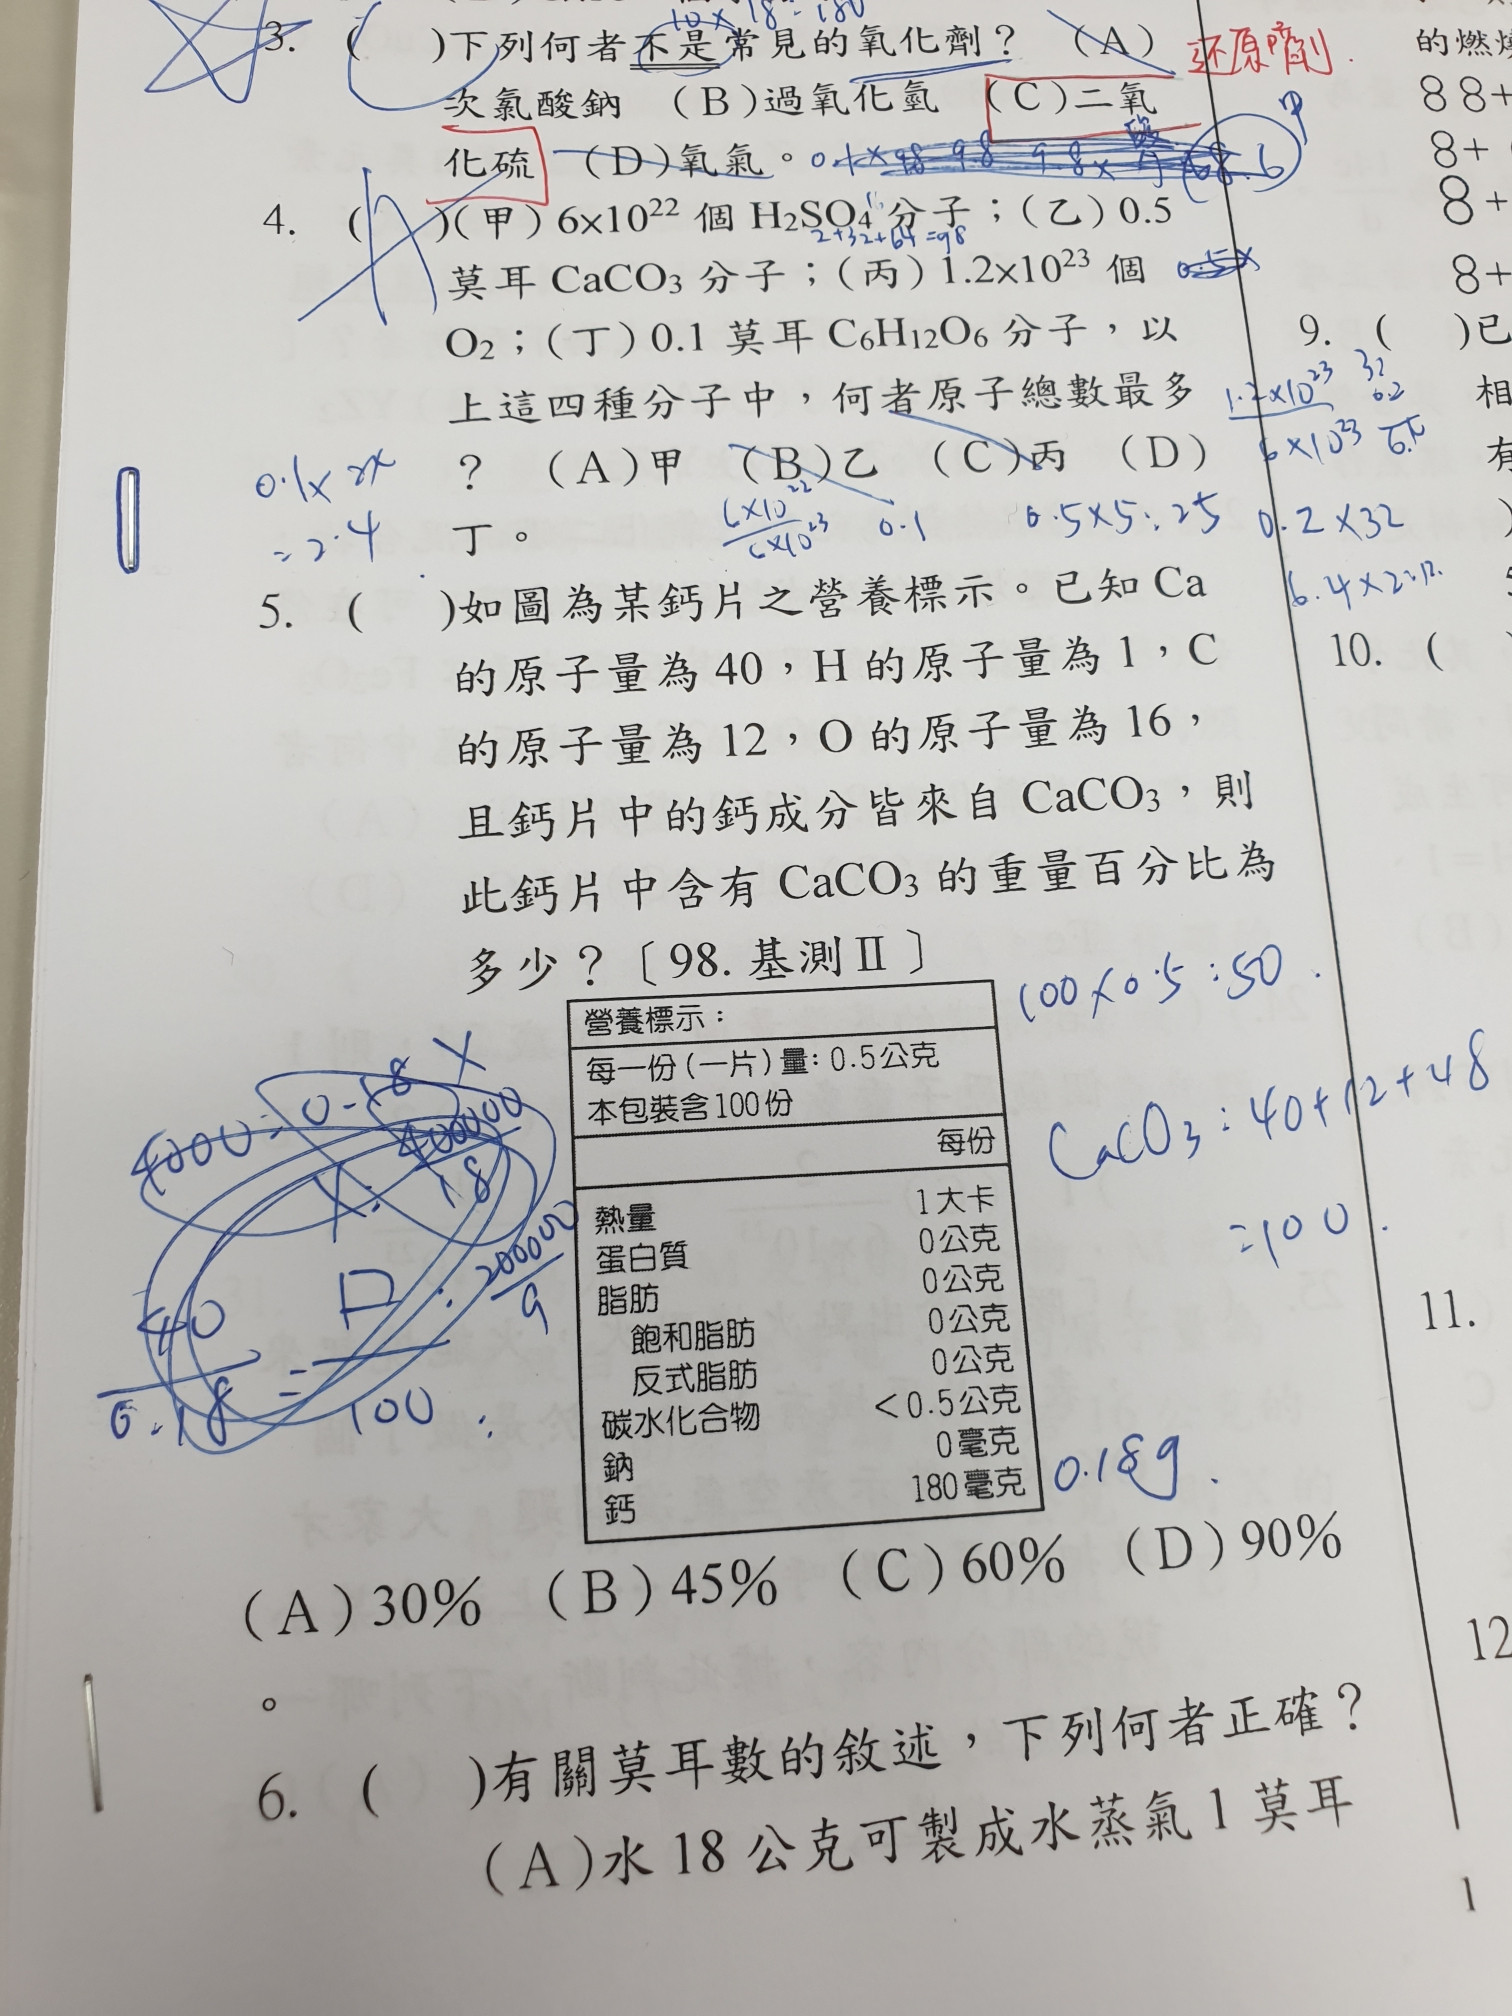 10×18=180
3. ( )下列何者不是常見的氧化劑? (A)
还原劑.
次氯酸鈉 (B)過氧化氫 (C)二氧
化硫 (D)氧氣。
4. ( )(甲) 6×10²² 個 H₂SO₄ 分子;(乙) 0.5
2+32+64=98
莫耳 CaCO₃ 分子;(丙) 1.2×10²³ 個
O₂;(丁) 0.1 莫耳 C₆H₁₂O₆ 分子,以
上這四種分子中,何者原子總數最多
? (A)甲 (B)乙 (C)丙 (D)
丁。
0.1×24
=2.4
6×10²²
6×10²³
0.1
0.5×5=25
1.2×10²³
6×10²³
32
0.2
0.2×32
6.4×2=12.
5. ( )如圖為某鈣片之營養標示。已知 Ca
的原子量為 40,H 的原子量為 1,C
的原子量為 12,O 的原子量為 16,
且鈣片中的鈣成分皆來自 CaCO₃,則
此鈣片中含有 CaCO₃ 的重量百分比為
多少?〔98. 基測Ⅱ〕
100×0.5=50.
營養標示:
每一份(一片)量: 0.5公克
本包裝含100份
每份
熱量 1大卡
蛋白質 0公克
脂肪 0公克
飽和脂肪 0公克
反式脂肪 0公克
碳水化合物 <0.5公克
鈉 0毫克
鈣 180毫克
CaCO₃=40+12+48
=100.
0.18g.
4000=0.18 X
400000
18
200000
9
40
0.18
=
100
(A)30% (B)45% (C)60% (D)90%
。
6. ( )有關莫耳數的敘述,下列何者正確?
(A)水 18 公克可製成水蒸氣 1 莫耳
的燃
88+
8+
8+
8+
9. ( )已
相
有
)
10. (
11.
12
1